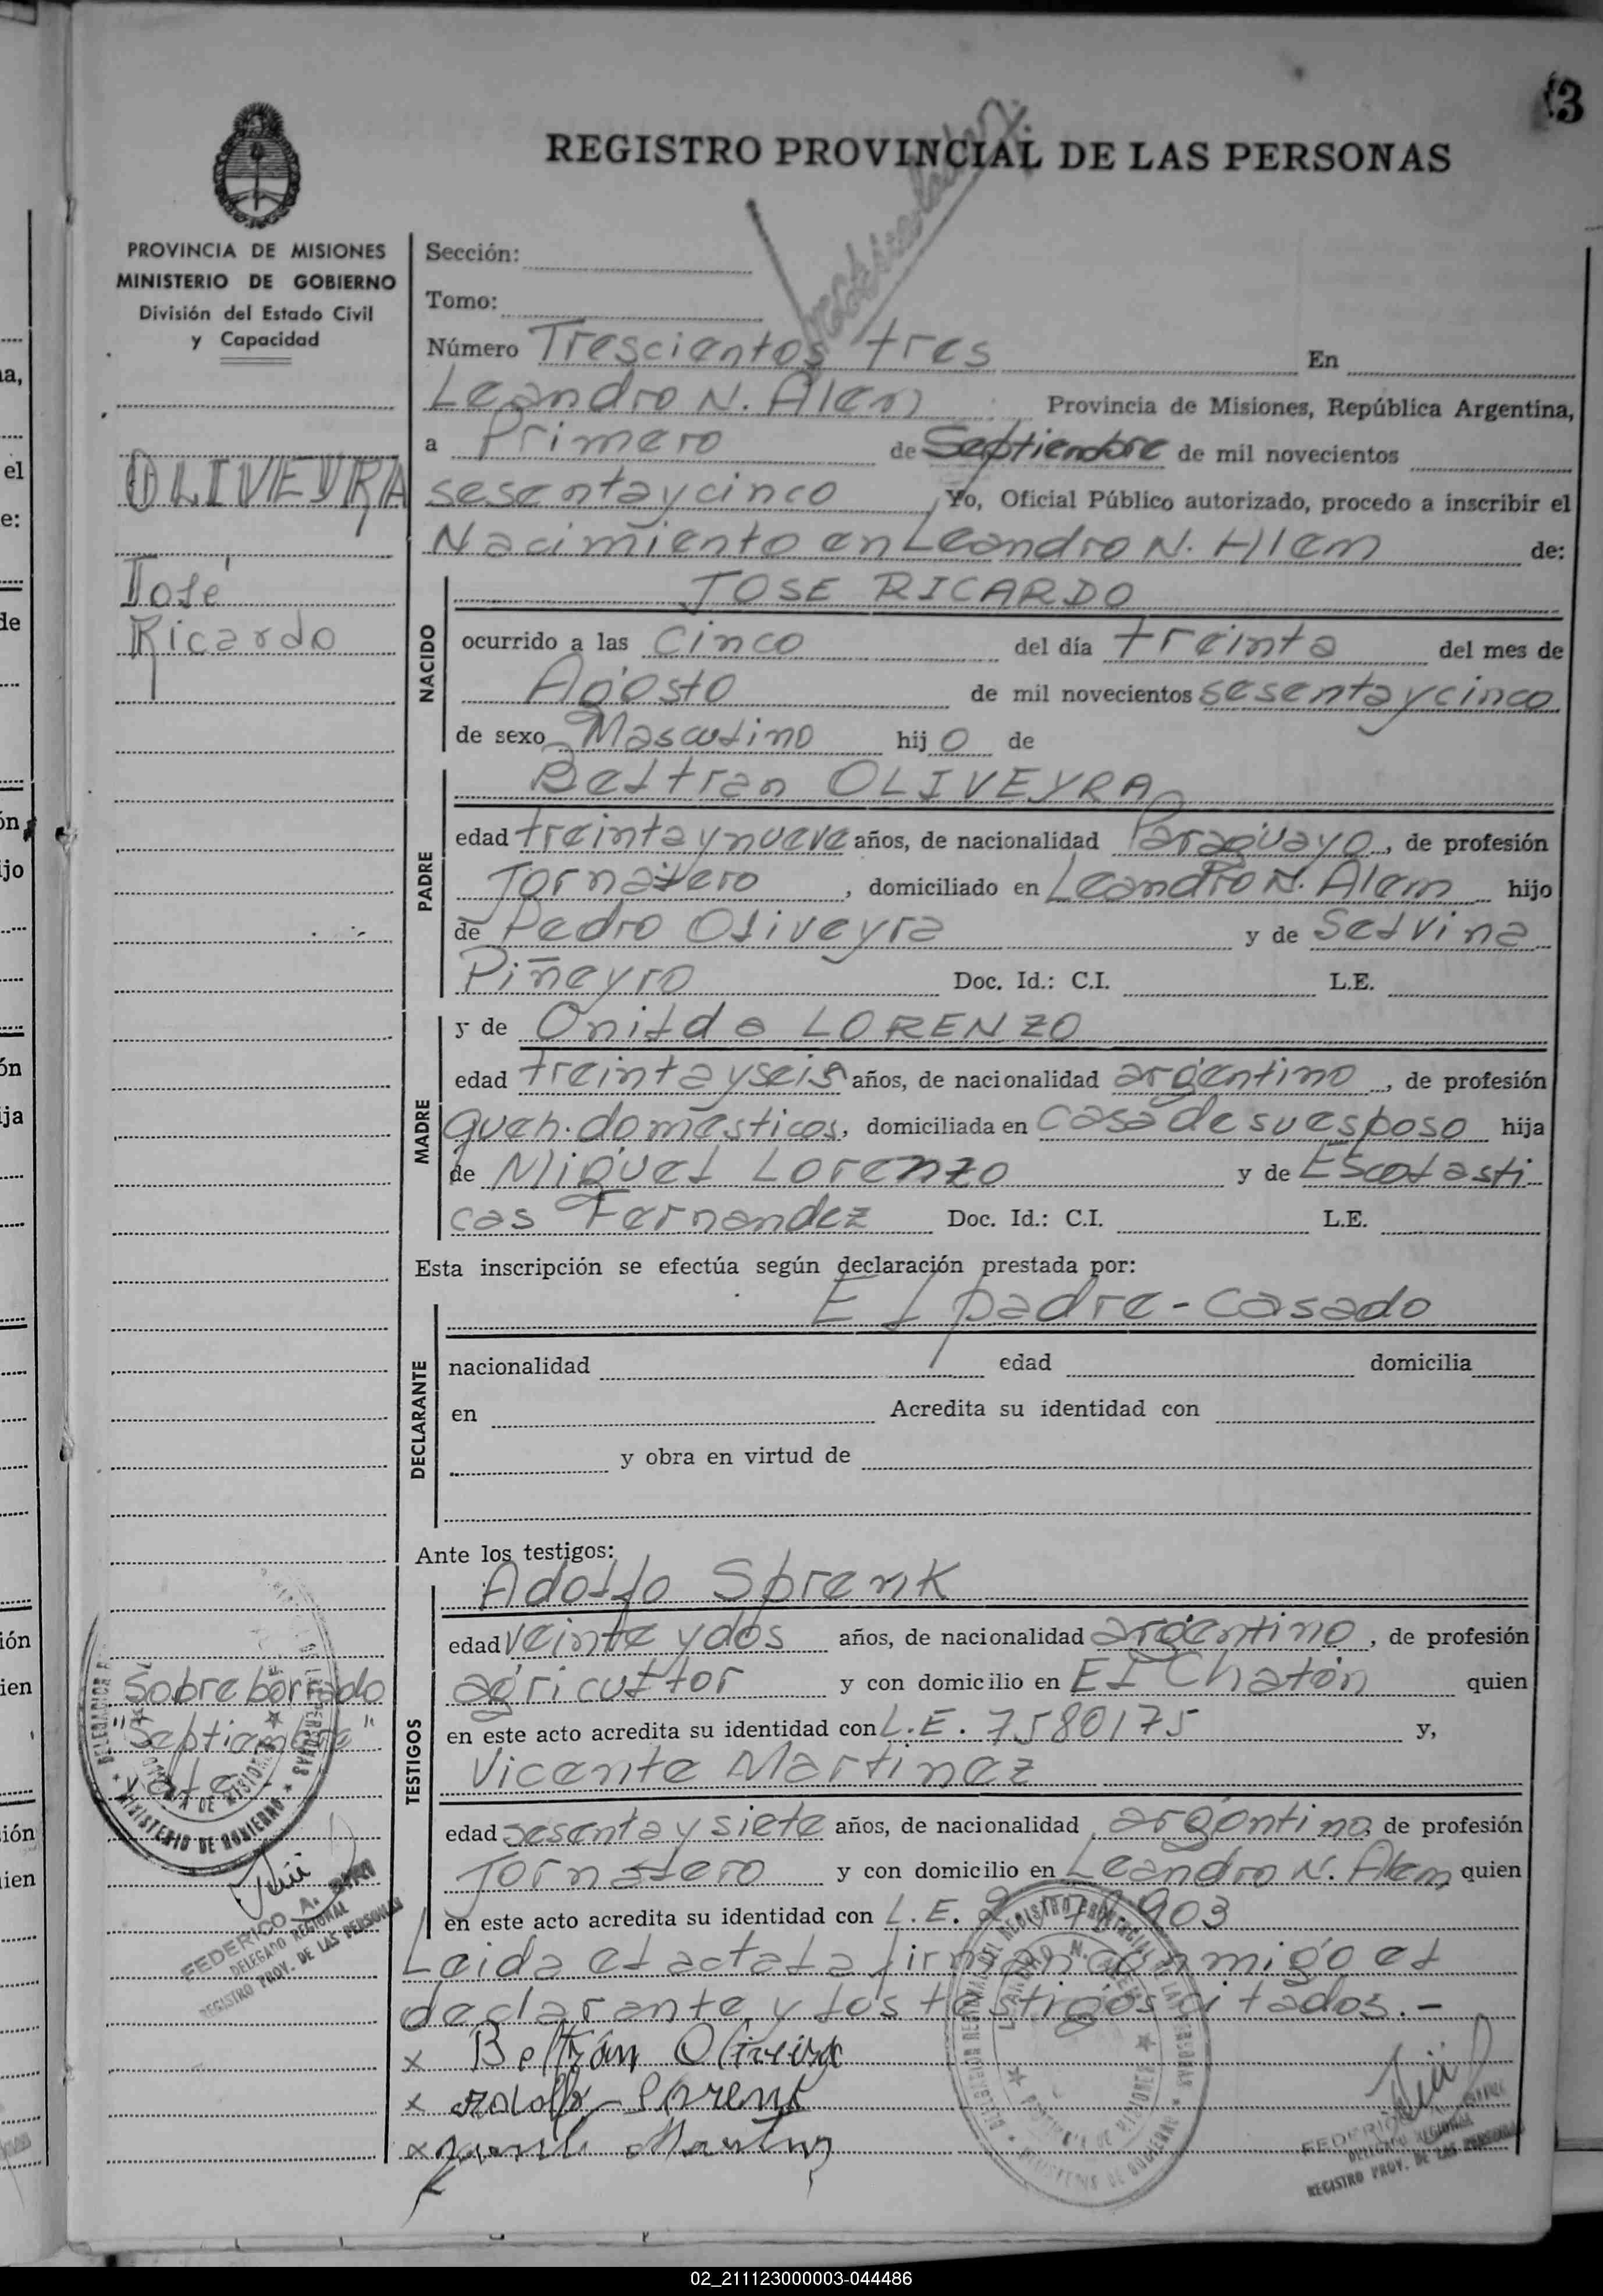 3
REGISTRO PROVINCIAL DE LAS PERSONAS
PROVINCIA DE MISIONES
MINISTERIO DE GOBIERNO
División del Estado Civil
y Capacidad
OLIVEYRA
José
Ricardo
Sección:
Tomo:
Número Trescientos tres En
Leandro N. Alem Provincia de Misiones, República Argentina,
a Primero de Septiembre de mil novecientos
sesentaycinco Yo, Oficial Público autorizado, procedo a inscribir el
Nacimiento en Leandro N. Alem de:
NACIDO
JOSE RICARDO
ocurrido a las cinco del día treinta del mes de
Agosto de mil novecientos sesentaycinco
de sexo Masculino hijo de
PADRE
Beltran OLIVEYRA
edad treintaynueve años, de nacionalidad Paraguayo, de profesión
Jornalero, domiciliado en Leandro N. Alem hijo
de Pedro Oliveyra y de Selvina
Piñeyro Doc. Id.: C.I. L.E.
MADRE
y de Onilda LORENZO
edad treintayseis años, de nacionalidad argentino, de profesión
queh. domésticos, domiciliada en casa de su esposo hija
de Miguel Lorenzo y de Escolasti
cas Fernandez Doc. Id.: C.I. L.E.
Esta inscripción se efectúa según declaración prestada por:
DECLARANTE
El padre - casado
nacionalidad edad domicilia
en Acredita su identidad con
y obra en virtud de
Ante los testigos:
TESTIGOS
Adolfo Sprenk
edad veinte y dos años, de nacionalidad argentino, de profesión
agricultor y con domicilio en El Chatón quien
en este acto acredita su identidad con L.E. 7580175 y,
Vicente Martinez
edad sesenta y siete años, de nacionalidad argentino, de profesión
Jornalero y con domicilio en Leandro N. Alem quien
en este acto acredita su identidad con L.E. 903
Leida el acta la firman conmigo el
declarante y los testigos citados.-
x Beltrán Oliveira
x Adolfo Sprenk
x Martinez
Sobre borrado
"Septiembre"
vale.
MINISTERIO DE GOBIERNO
FEDERICO A.
DELEGADO REGIONAL
REGISTRO PROV. DE LAS PERSONAS
DELEGADO REGIONAL
REGISTRO PROV. DE LAS PERSONAS
02_211123000003-044486